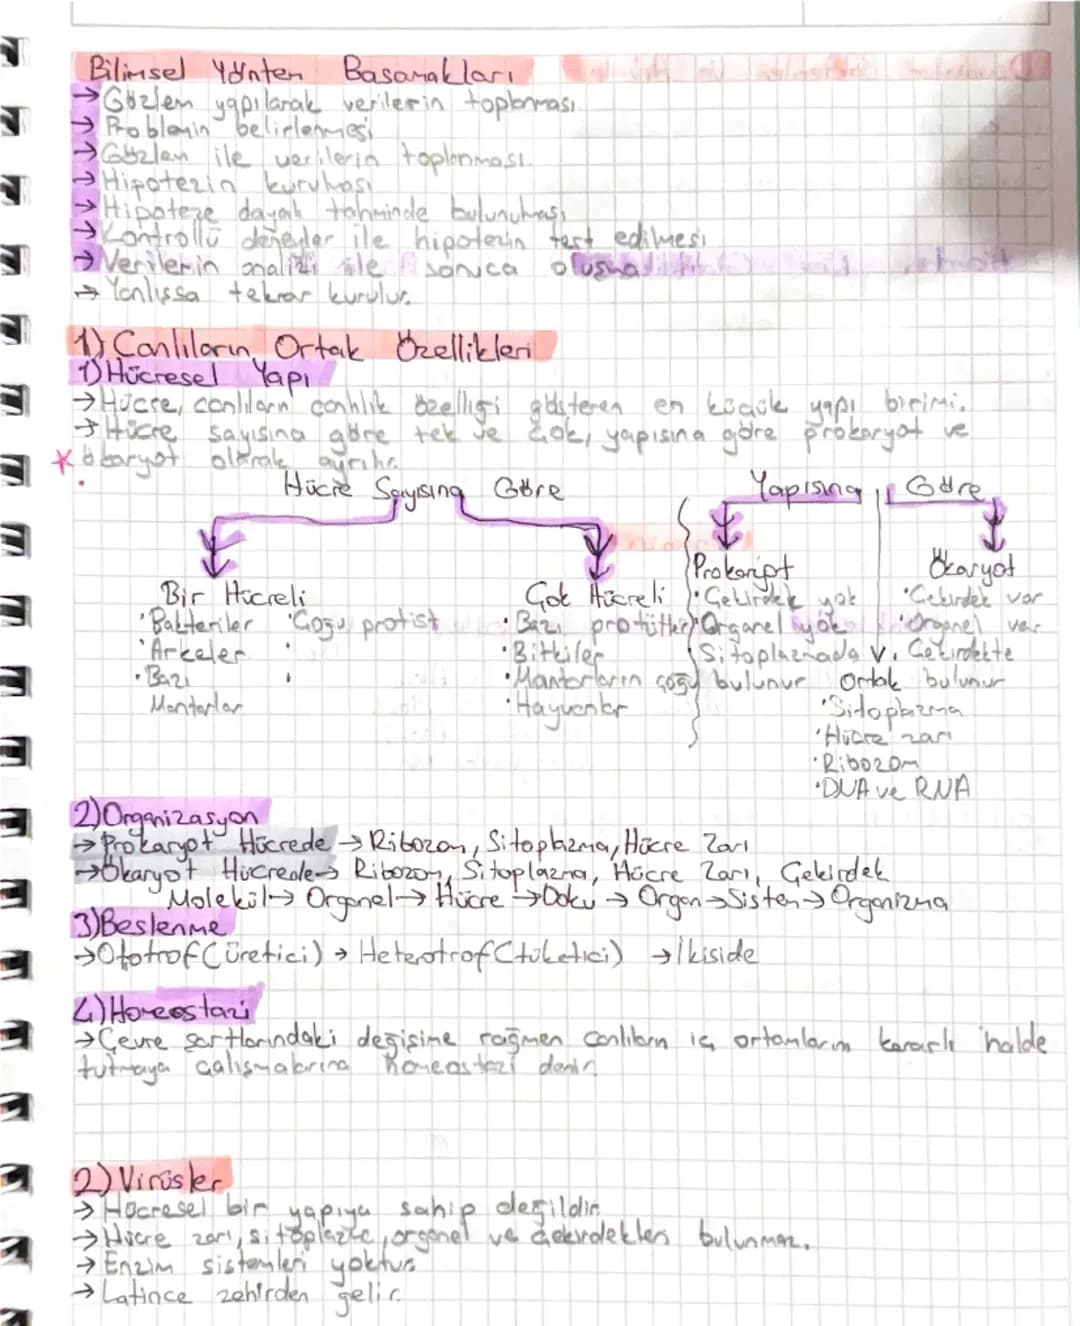 Bilimsel Yönten Basamakları
→Gözlem yapılarak verilerin toplanması
→Problemin belirlenmesi
→Gözlem ile verilerin toplanması
→Hipotezin kurulması
→Hipoteze dayalı tahminde bulunulması
→Kontrollü deneyler ile hipotezin test edilmesi
→Verilerin analizi ile sonuca oluşma
→Yanlışsa tekrar kurulur.
1) Canlıların Ortak Özellikleri
1) Hücresel Yapı
→Hücre, canlıların canlılık özelliği gösteren en küçük yapı birimi.
→Hücre sayısına göre tek ve çok, yapısına göre prokaryot ve
*ökaryot olarak ayrılır.
Hücre Sayısına Göre
Yapısına Göre
Bir Hücreli
•Bakteriler •Çoğu protist
•Arkeler
•Bazı
Mantarlar
Çok Hücreli
•Bazı
•Bitkiler
•Mantarların çoğu
•Hayvanlar
Prokaript
•Çekirdek yok
•Organel yok
Sitoplazmada
bulunur
Ökaryot
•Çekirdek var
•Organel var
•Çekirdekte
Ortak bulunur
•Sitoplazma
•Hücre zarı
•Ribozom
•DNA ve RNA
2)Organizasyon
→Prokaryot Hücrede →Ribozom, Sitoplazma, Hücre Zarı
→Ökaryot Hücrede→ Ribozom, Sitoplazma, Hücre Zarı, Çekirdek
Molekül→ Organel→ Hücre →Doku → Organ→Sistem→ Organizma
3)Beslenme
→Ototrof (üretici) → Heterotrof (tüketici) →İkiside
4)Homeostazi
→Çevre şartlarındaki değişime rağmen canlıların iç ortamlarını kararlı halde
tutmaya çalışmalarına homeostazi denir
2) Virüsler
→Hücresel bir yapıya sahip değildir.
→Hücre zarı, sitoplazma, organel ve çekirdekleri bulunmaz.
→Enzim sistemleri yoktur.
→Latince zehirden gelir.